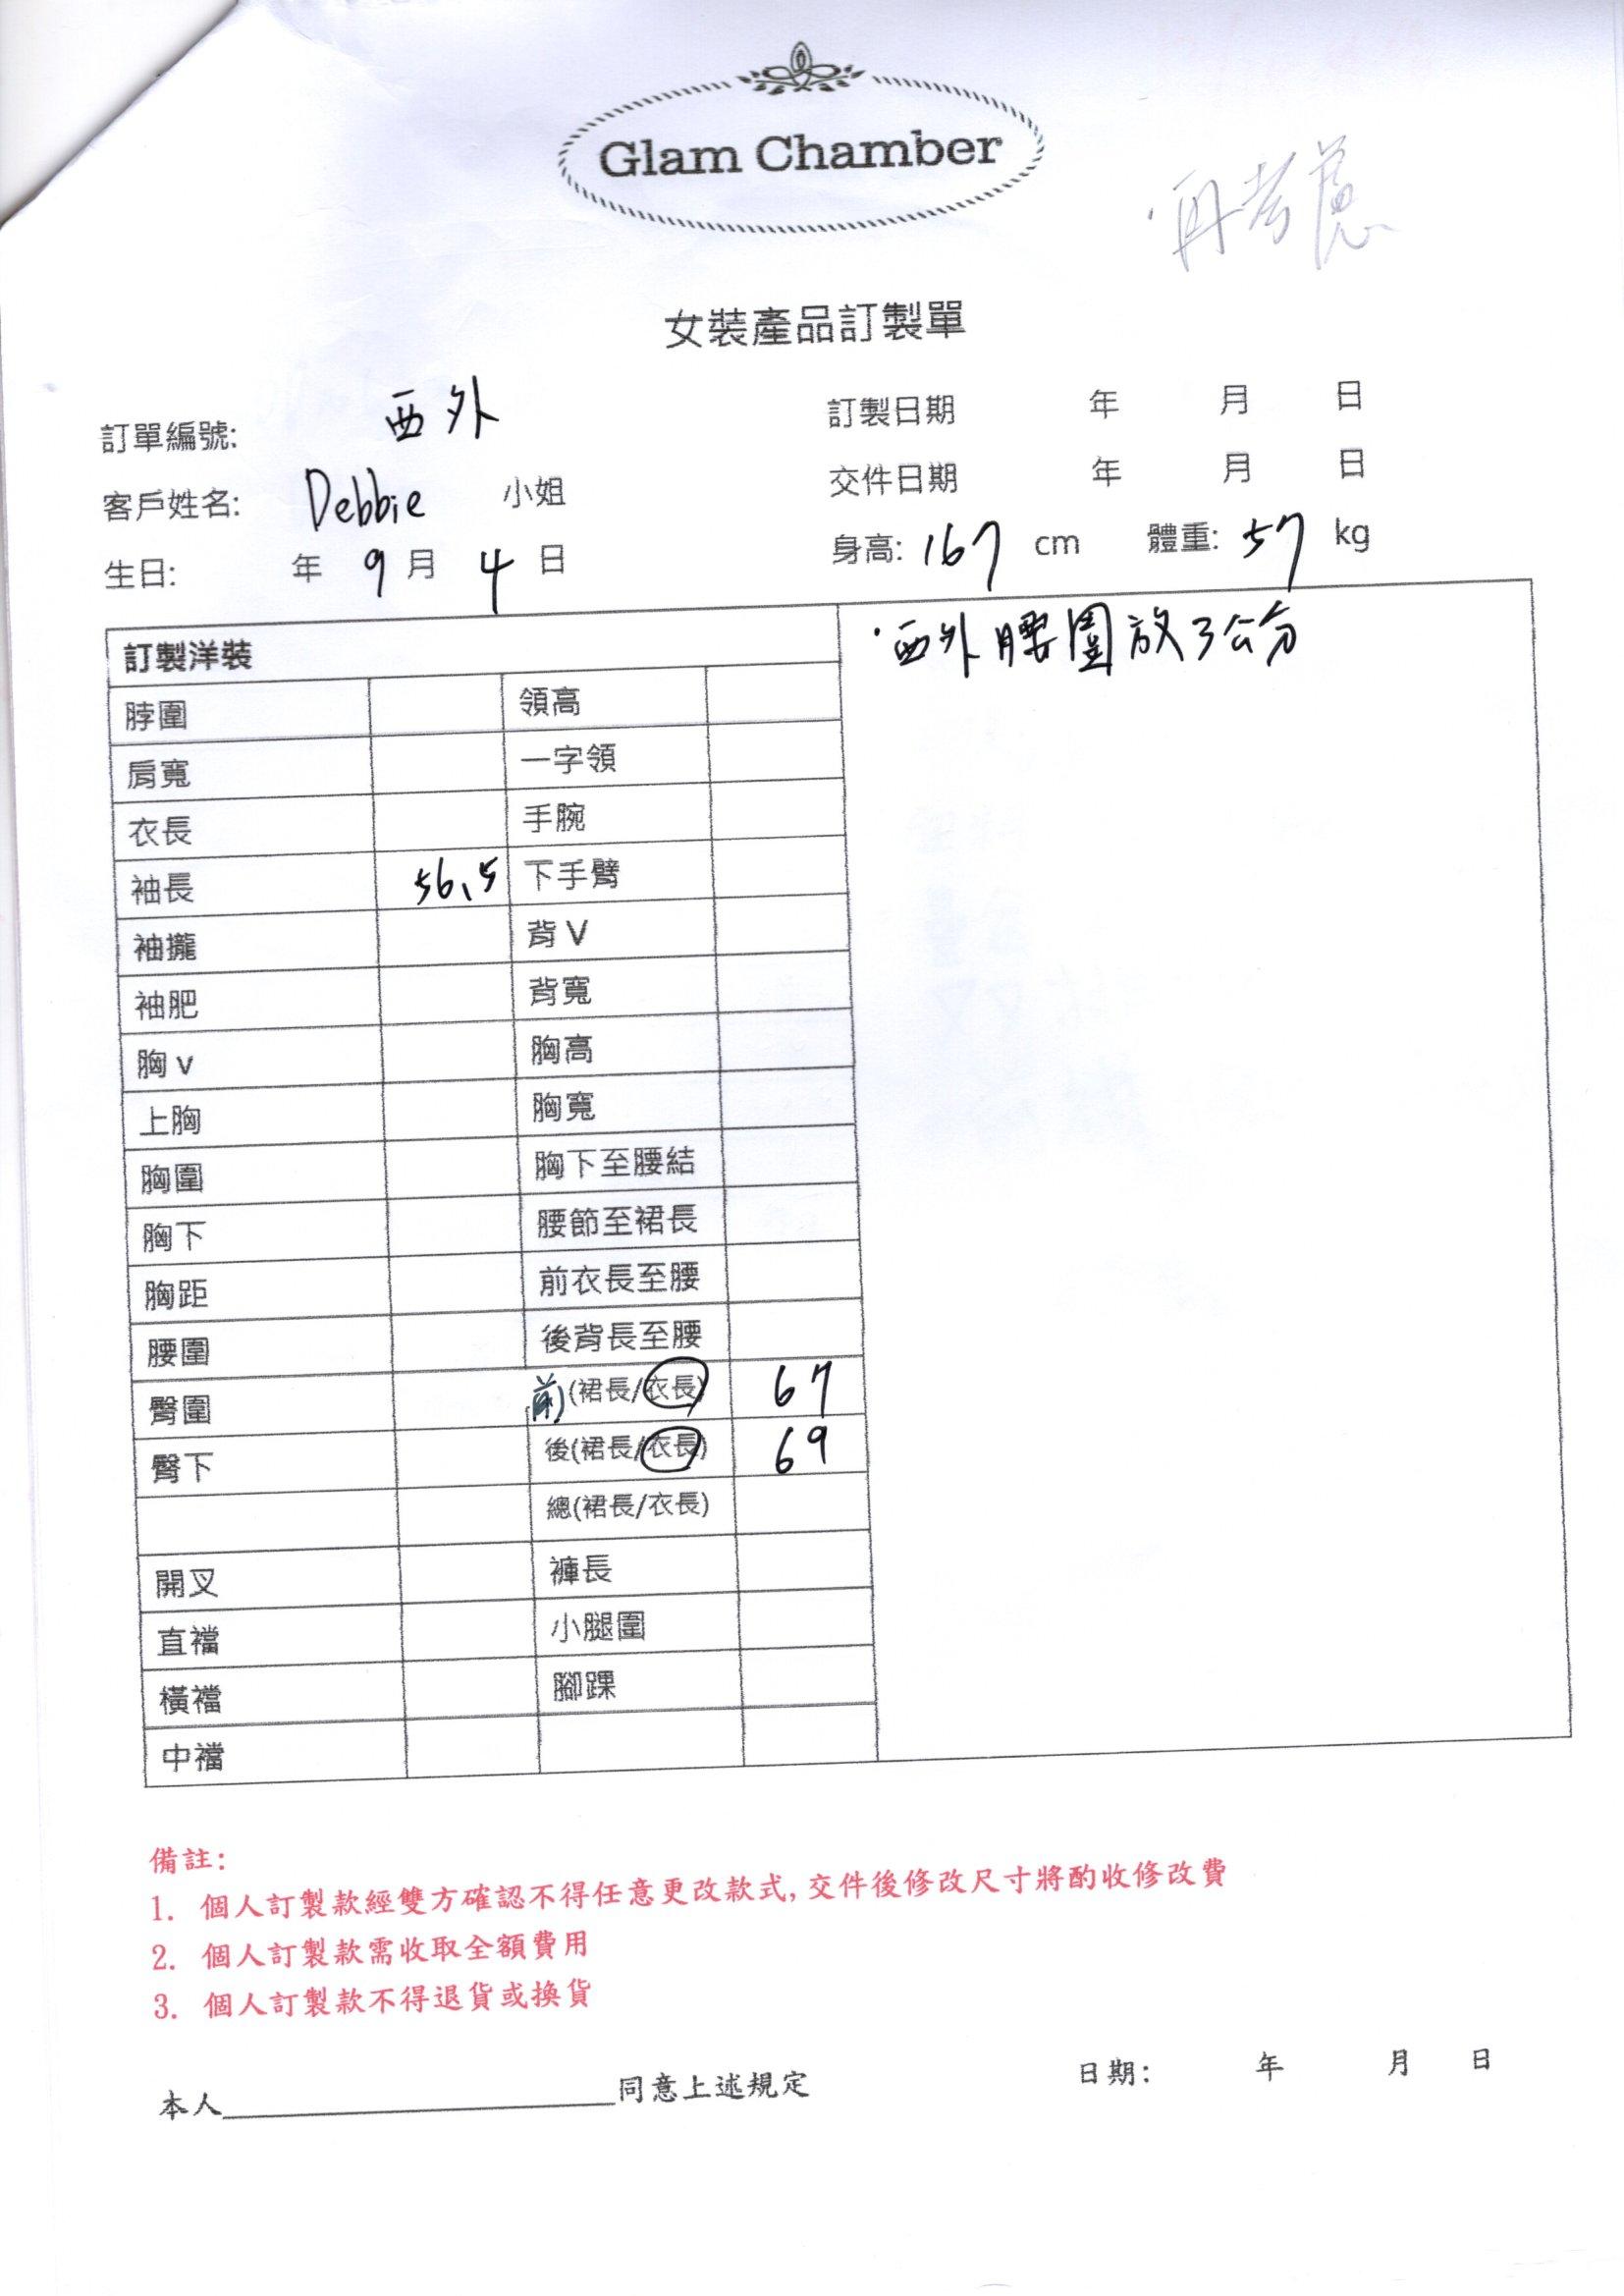 Glam Chamber
·再考慮
女裝產品訂製單
訂單編號: 西外 訂製日期 年 月 日
客戶姓名: Debbie 小姐 交件日期 年 月 日
生日: 年 9 月 4 日 身高: 167 cm 體重: 57 kg
訂製洋裝
·西外腰圍放3公分
脖圍 領高
肩寬 一字領
衣長 手腕
袖長 56.5 下手臂
袖攏 背 V
袖肥 背寬
胸 v 胸高
上胸 胸寬
胸圍 胸下至腰結
胸下 腰節至裙長
胸距 前衣長至腰
腰圍 後背長至腰
臀圍 前(裙長/衣長) 67
臀下 後(裙長/衣長) 69
總(裙長/衣長)
開叉 褲長
直襠 小腿圍
橫襠 腳踝
中襠
備註:
1. 個人訂製款經雙方確認不得任意更改款式, 交件後修改尺寸將酌收修改費
2. 個人訂製款需收取全額費用
3. 個人訂製款不得退貨或換貨
本人____________________同意上述規定 日期: 年 月 日